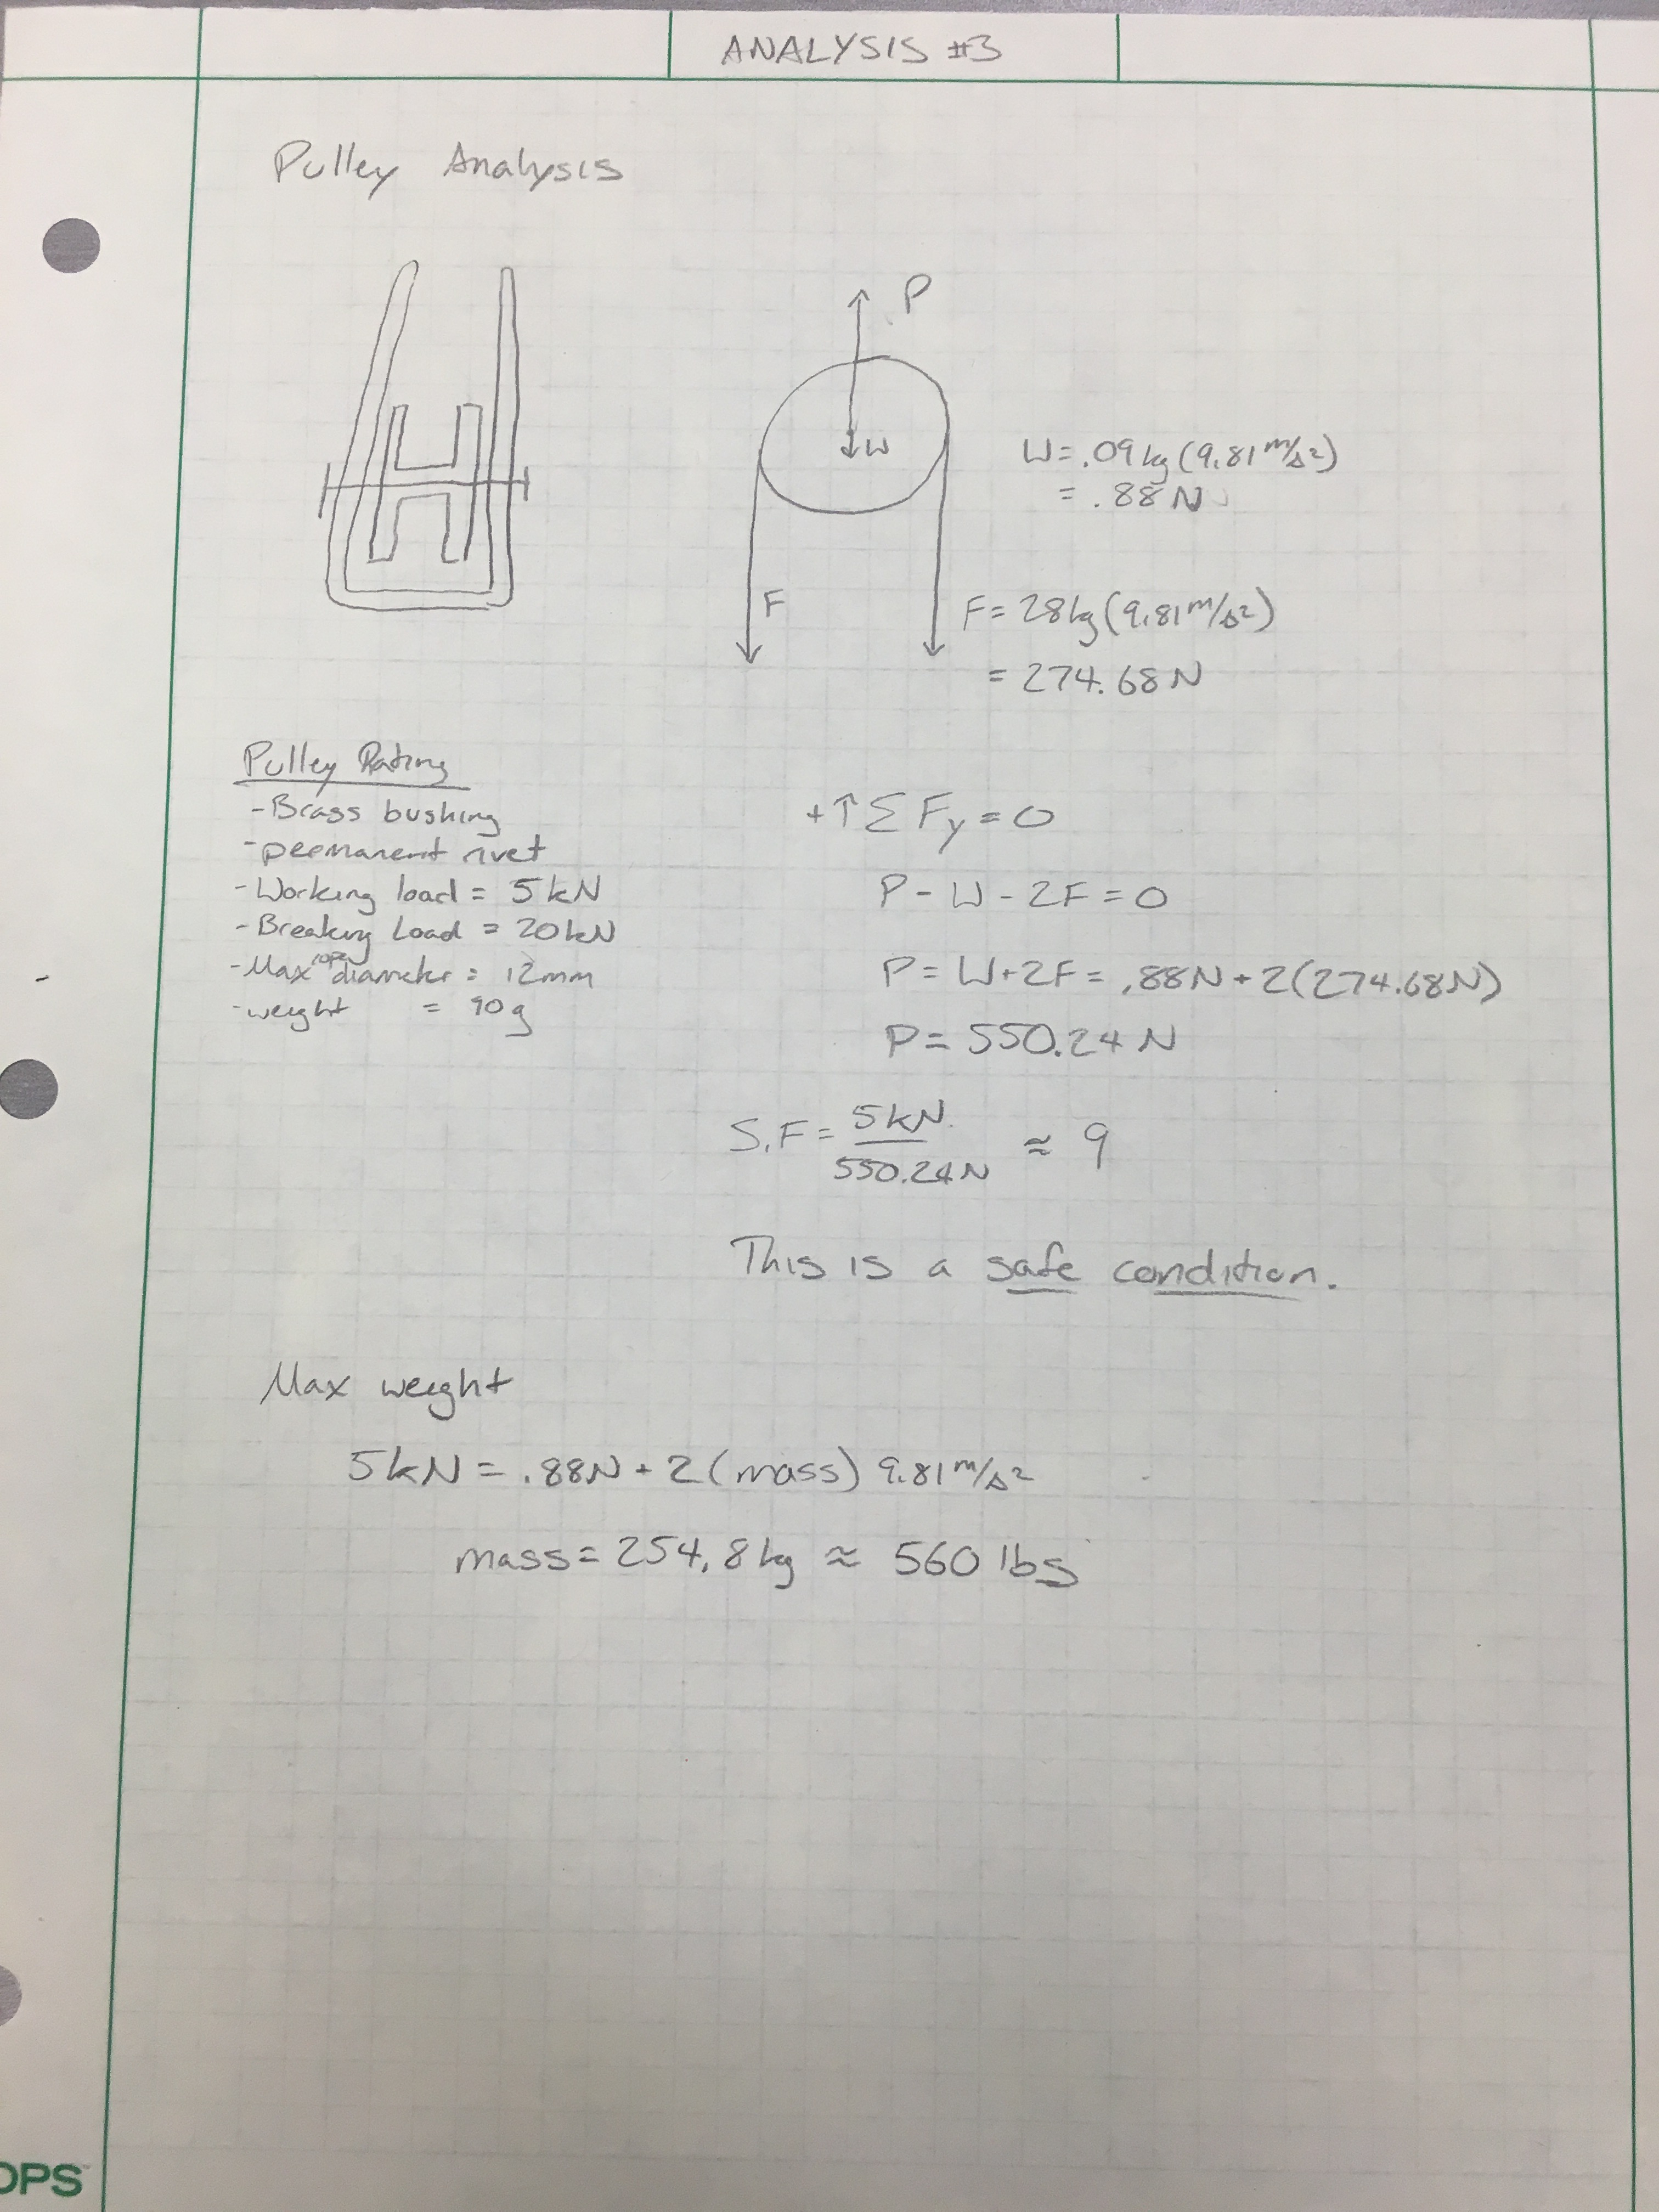 ANALYSIS #3
Pulley Analysis
P
W
W=.09kg(9.81m/s²)
= .88N
F
F=28kg(9.81m/s²)
= 274.68N
Pulley Rating
-Brass bushing
-permanent rivet
-Working load = 5kN
-Breaking Load = 20kN
-Max rope diameter = 12mm
-weight = 90g
+↑ΣFy=0
P-W-2F=0
P=W+2F=.88N+2(274.68N)
P=550.24N
S.F= 5kN/550.24N ≈ 9
This is a safe condition.
Max weight
5kN=.88N+2(mass)9.81m/s²
mass=254.8kg ≈ 560lbs
OPS